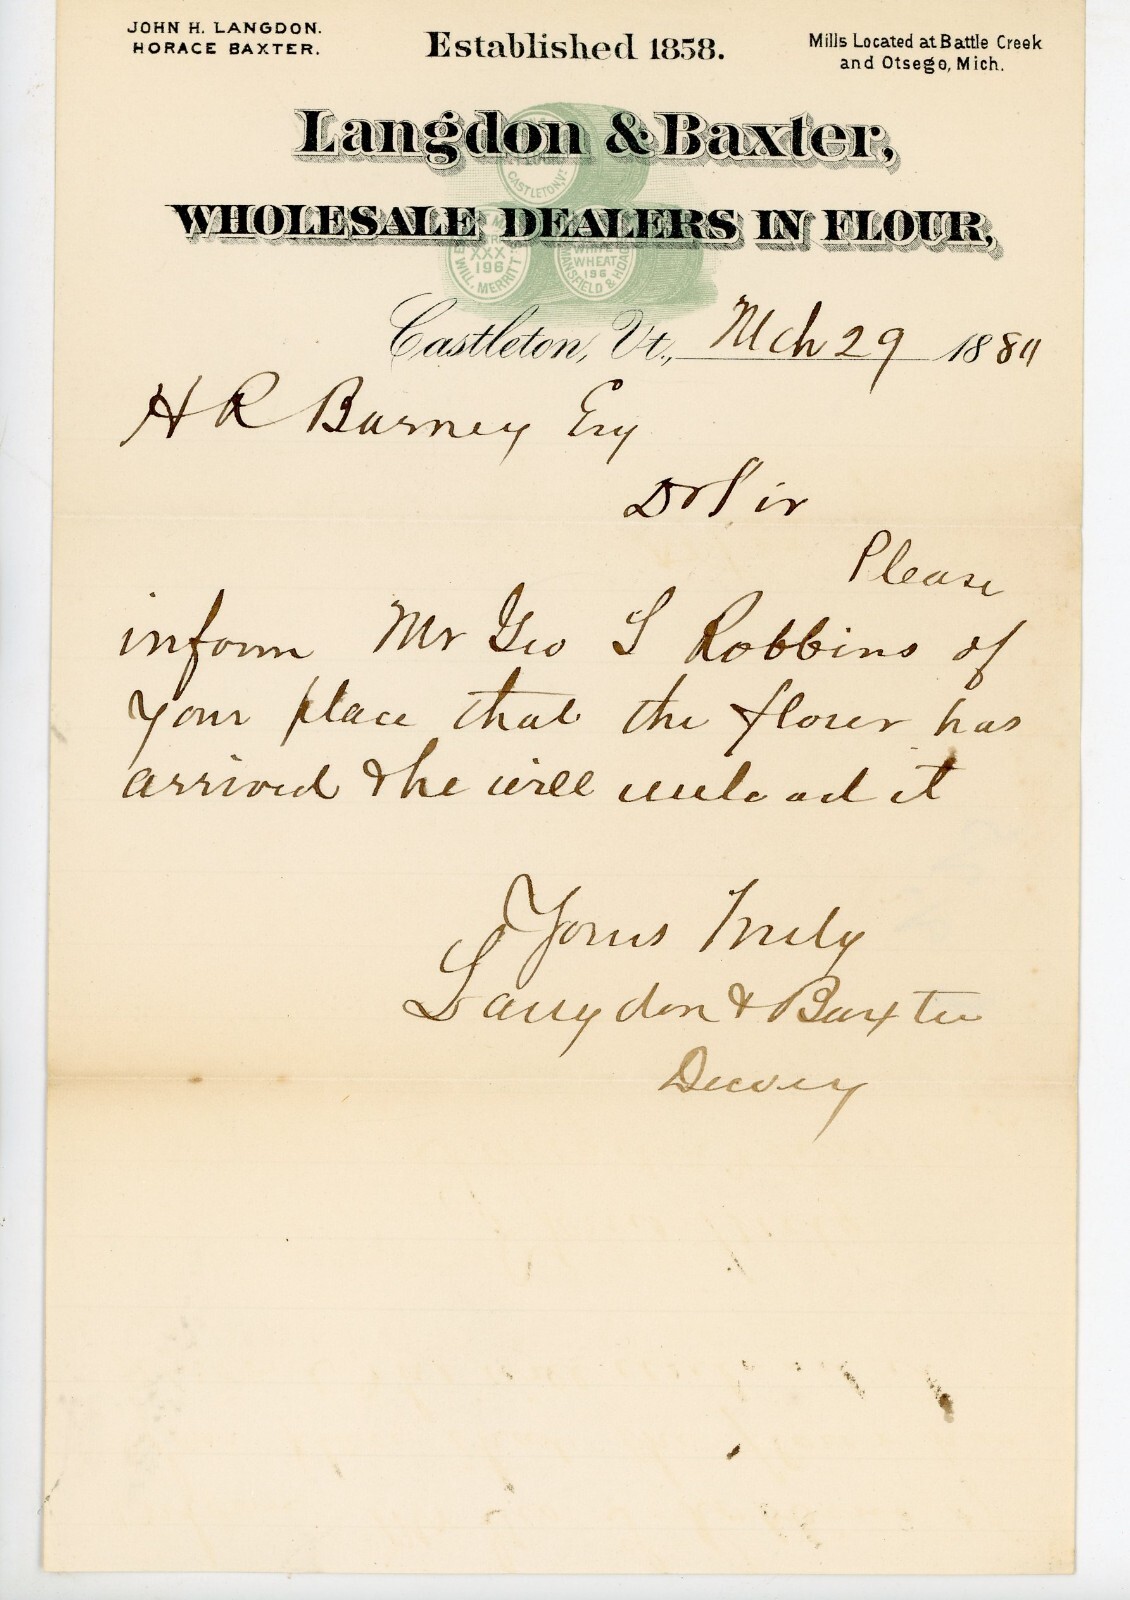 JOHN H. LANGDON.
HORACE BAXTER.
Established 1858.
Mills Located at Battle Creek
and Otsego, Mich.
Langdon & Baxter,
CASTLETON, VT
WHOLESALE DEALERS IN FLOUR,
XXX
196
WILL. MERRITT
WHITE
WHEAT
196
MANSFIELD & HOAG
Castleton, Vt., Mch 29 188
H R Barney Esq
Dr Sir
Please
inform Mr Geo S Robbins of
your place that the flour has
arrived & he will unload it
Yours Truly
Langdon & Baxter
Dewey